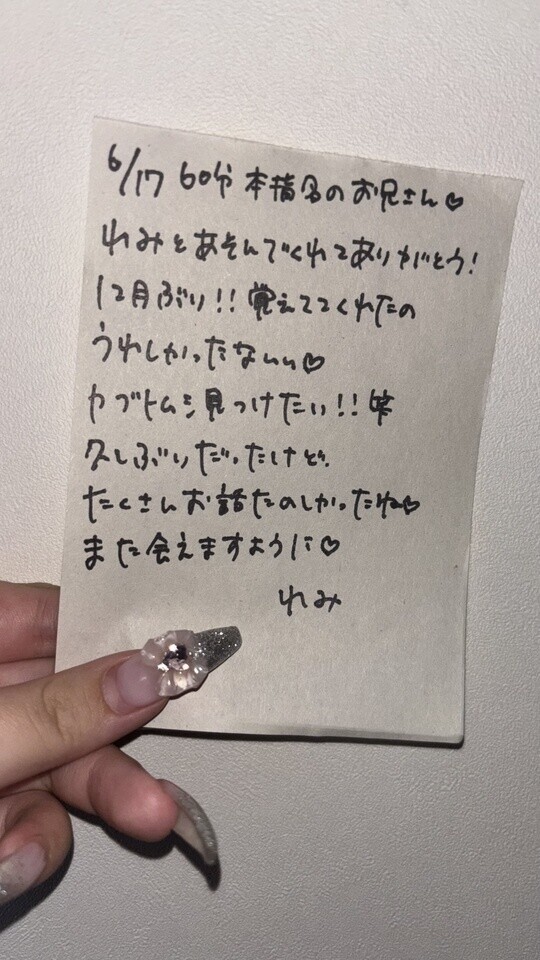 6/17 60分 本指名のお兄さん♡
れみとあそんでくれてありがとう!
12月ぶり!! 覚えててくれたの
うれしかったなぃぃ♡
カブトムシ見つけたい!! 笑
久しぶりだったけど、
たくさんお話たのしかったね♡
また会えますように♡
れみ